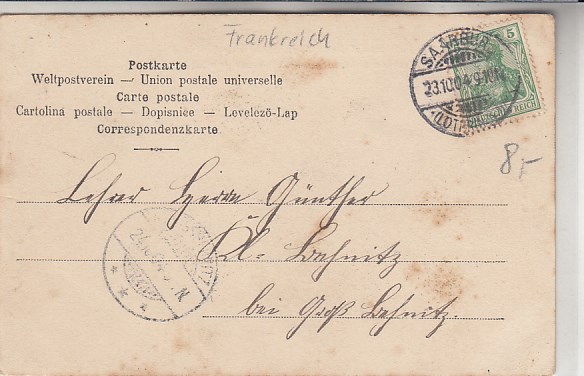 Frankreich
Postkarte
Weltpostverein — Union postale universelle
Carte postale
Cartolina postale — Dopisnice — Levelező-Lap
Correspondenzkarte
SAARBURG
23.10.04.9-10N
(LOTHR)
5
REICH
8,-
Lehrer Herrn Günther
Kl. Behnitz
bei Groß Behnitz.